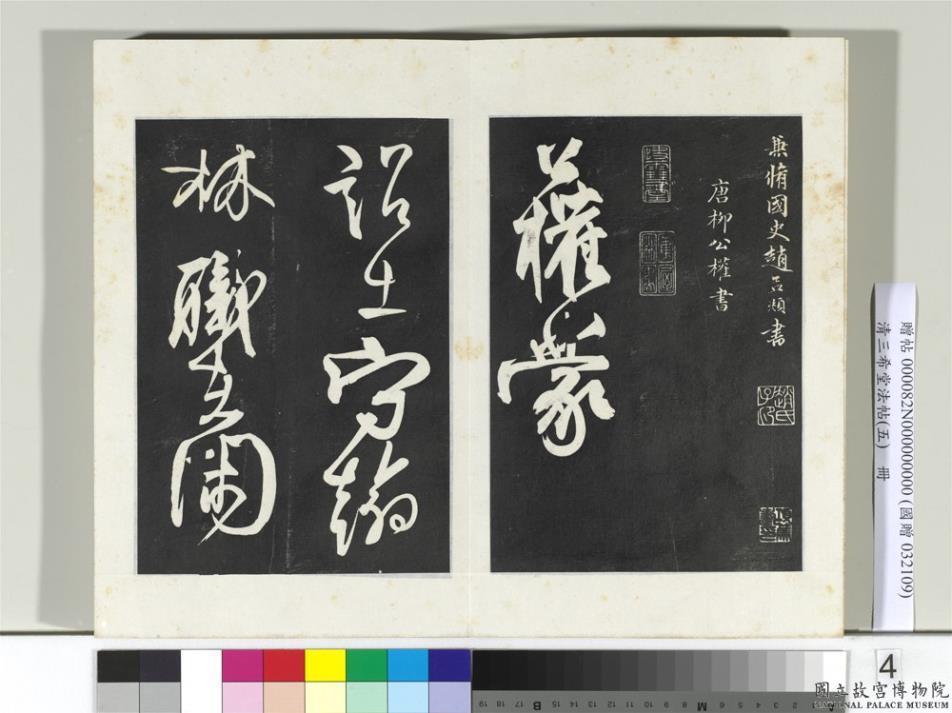 兼脩國史趙孟頫書
趙氏子昂
唐柳公權書
公權蒙
詔出守翰
林職在閑
贈帖 000082N000000000 (國贈 032109)
清三希堂法帖(五) 冊
4
國立故宮博物院
NATIONAL PALACE MUSEUM